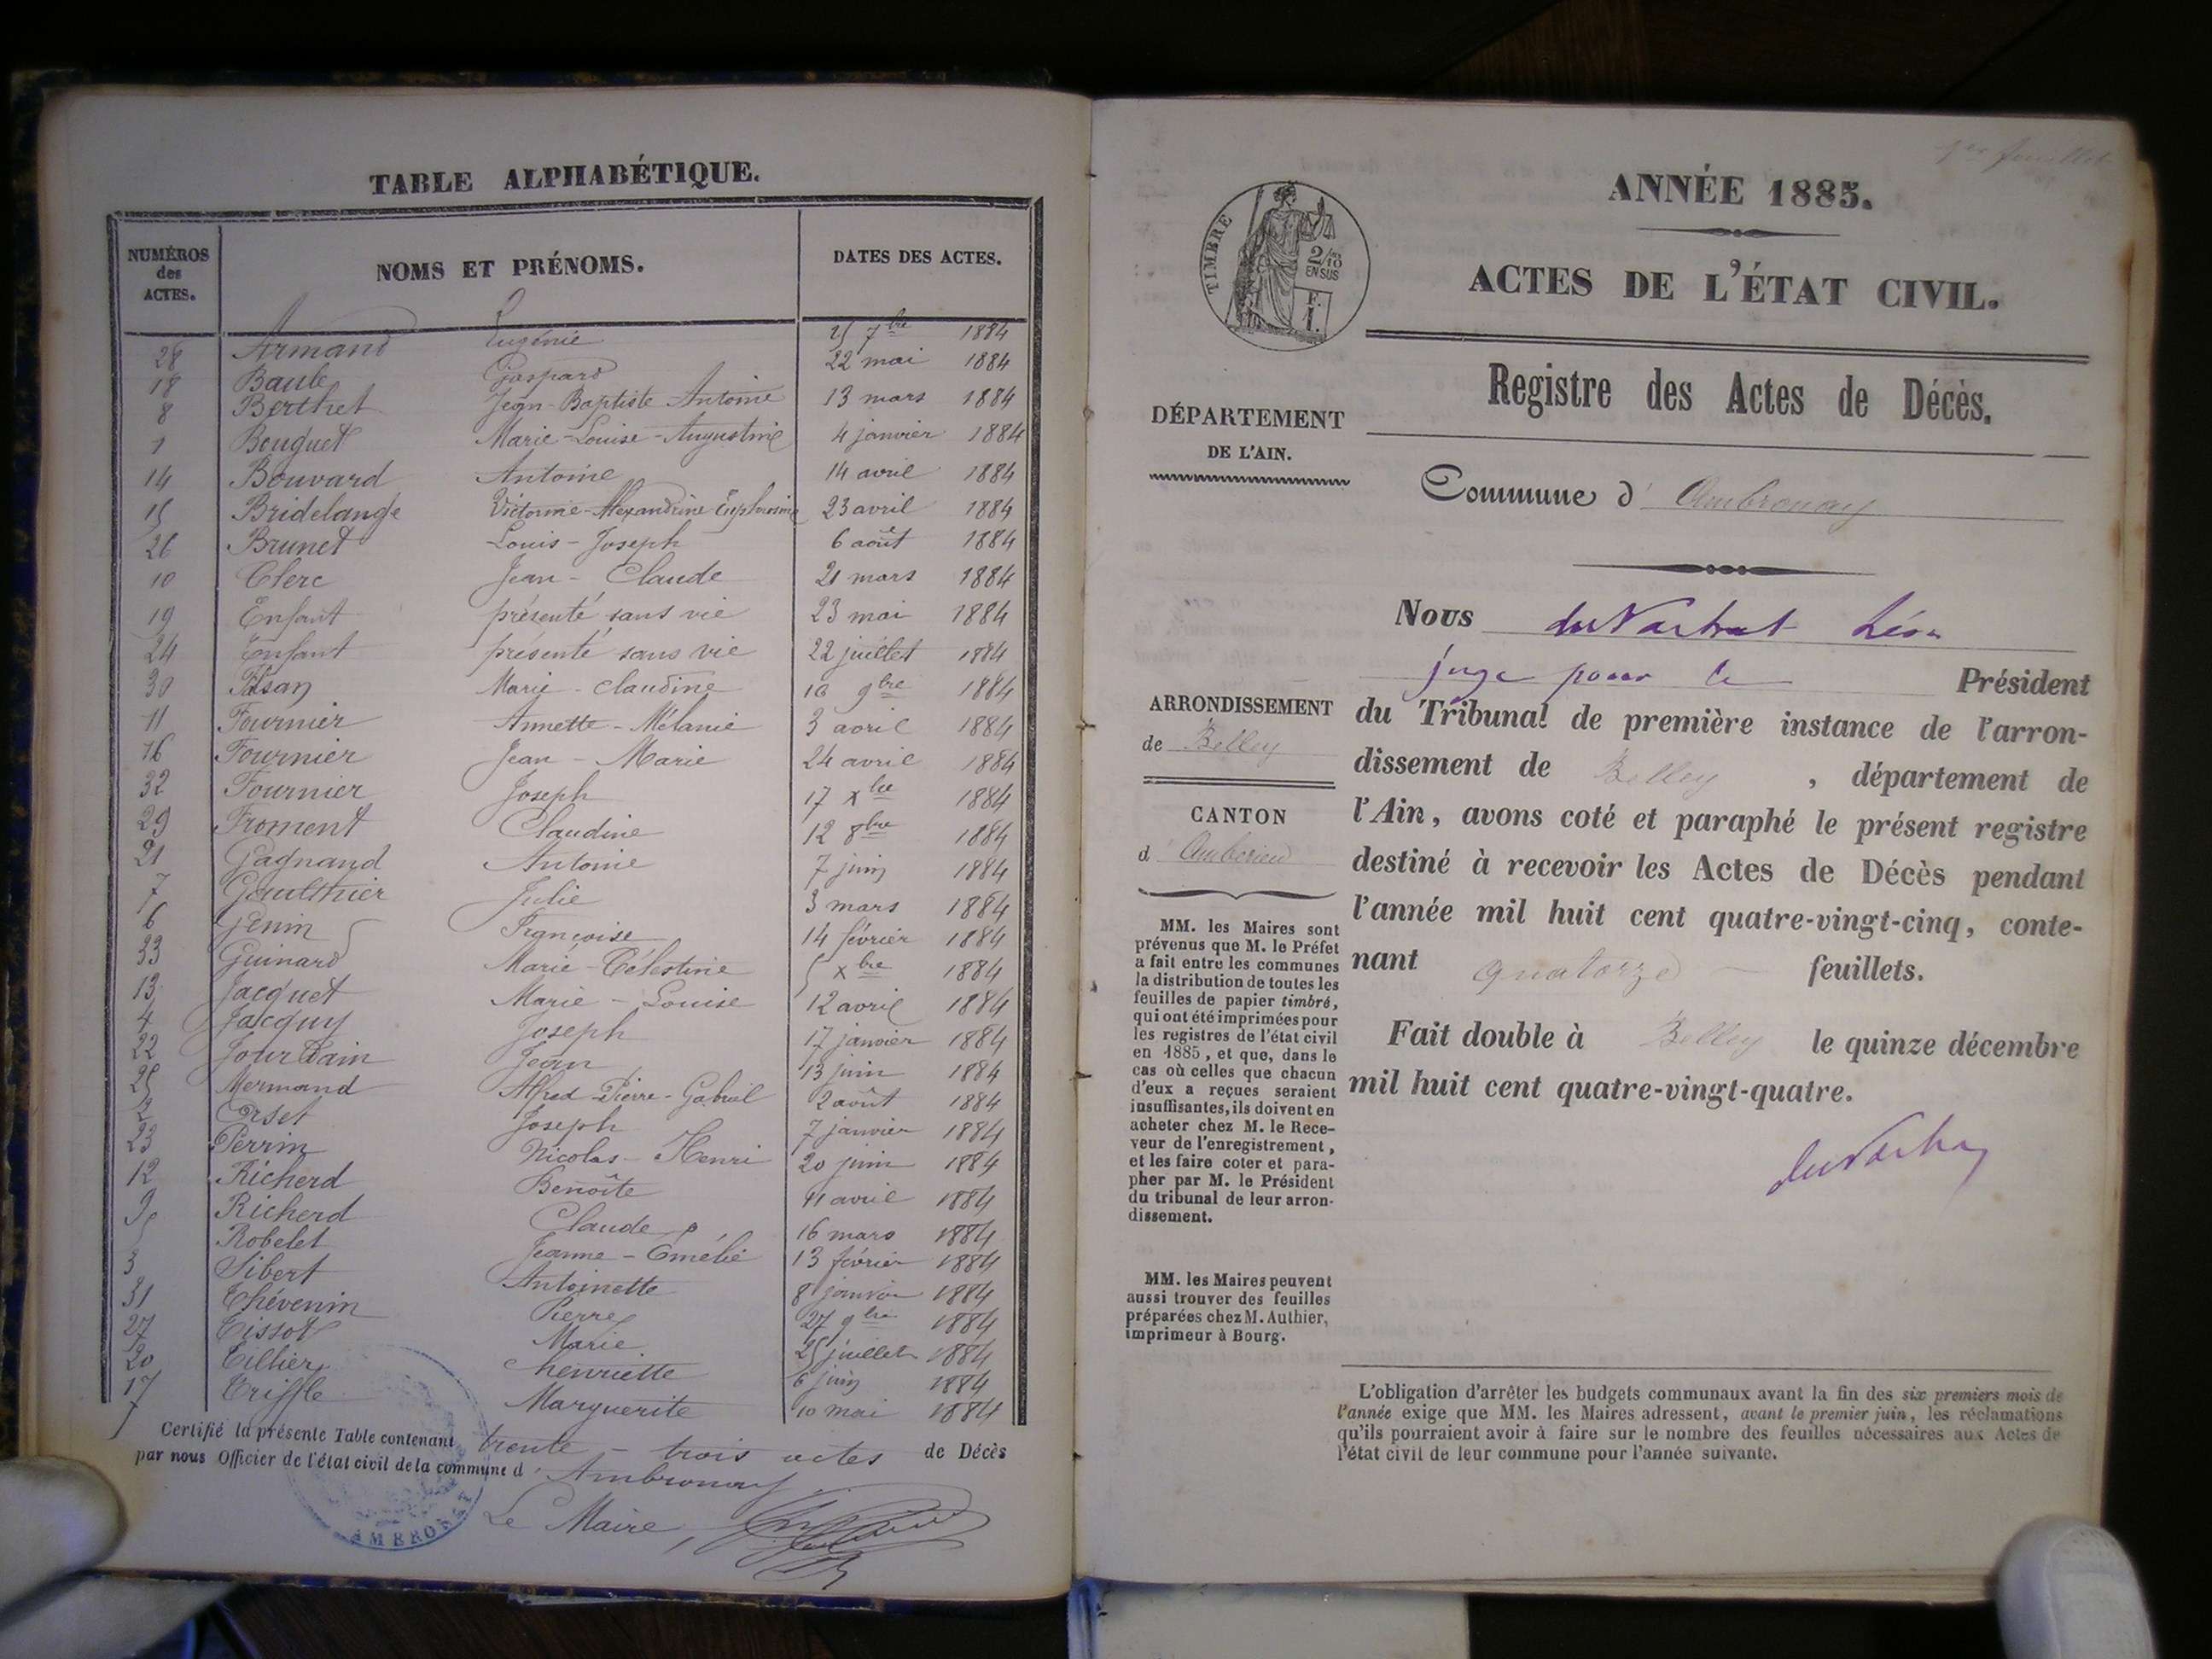 TABLE ALPHABÉTIQUE.
NUMÉROS des ACTES.
NOMS ET PRÉNOMS.
DATES DES ACTES.
28 Armand Eugénie 25 7bre 1884
18 Baule Gaspard 22 mai 1884
8 Berthet Jean-Baptiste Antoine 13 mars 1884
1 Bouquet Marie-Louise-Augustine 4 janvier 1884
14 Bouvard Antoine 14 avril 1884
15 Bridelange Victorine-Alexandrine-Euphrosine 23 avril 1884
26 Brunet Louis-Joseph 6 août 1884
10 Clerc Jean-Claude 21 mars 1884
19 Enfant présenté sans vie 23 mai 1884
24 Enfant présenté sans vie 22 juillet 1884
30 Marie-Claudine 10 9bre 1884
11 Fournier Annette-Mélanie 3 avril 1884
16 Fournier Jean-Marie 24 avril 1884
32 Fournier Joseph 17 xbre 1884
29 Froment Claudine 12 8bre 1884
21 Gagnand Antoine 7 juin 1884
7 Gaulthier Julie 3 mars 1884
6 Genin Françoise 14 février 1884
33 Guinard Marie-Célestine xbre 1884
13 Jacquet Marie-Louise 12 avril 1884
4 Jacquy Joseph 17 janvier 1884
22 Jourdain Jean 13 juin 1884
25 Mermand Alfred-Pierre-Gabriel 2 août 1884
2 Orset Joseph 7 janvier 1884
23 Perrin Nicolas-Henri 20 juin 1884
12 Richerd Benoîte 11 avril 1884
9 Richerd Claude 16 mars 1884
5 Robelet Jeanne-Emélie 13 février 1884
3 Sibert Antoinette 8 janvier 1884
31 Thévenin Pierre 27 9bre 1884
27 Tissot Marie 25 juillet 1884
20 Tillier henriette 6 juin 1884
17 Triffle Marguerite 10 mai 1884
Certifié la présente Table contenant trente-trois actes de Décès
par nous Officier de l'état civil de la commune d'Ambronay
Le Maire,
TIMBRE
2/10 EN SUS
ANNÉE 1885.
ACTES DE L'ÉTAT CIVIL.
Registre des Actes de Décès.
DÉPARTEMENT
DE L'AIN.
Commune d'Ambronay
ARRONDISSEMENT
de Belley
CANTON
d'Ambérieu
MM. les Maires sont
prévenus que M. le Préfet
a fait entre les communes
la distribution de toutes les
feuilles de papier timbré,
qui ont été imprimées pour
les registres de l'état civil
en 1885, et que, dans le
cas où celles que chacun
d'eux a reçues seraient
insuffisantes, ils doivent en
acheter chez M. le Rece-
veur de l'enregistrement,
et les faire coter et para-
pher par M. le Président
du tribunal de leur arron-
dissement.
MM. les Maires peuvent
aussi trouver des feuilles
préparées chez M. Authier,
imprimeur à Bourg.
Nous Léon
juge pour le Président
du Tribunal de première instance de l'arron-
dissement de Belley, département de
l'Ain, avons coté et paraphé le présent registre
destiné à recevoir les Actes de Décès pendant
l'année mil huit cent quatre-vingt-cinq, conte-
nant quatorze feuillets.
Fait double à Belley le quinze décembre
mil huit cent quatre-vingt-quatre.
L'obligation d'arrêter les budgets communaux avant la fin des six premiers mois de
l'année exige que MM. les Maires adressent, avant le premier juin, les réclamations
qu'ils pourraient avoir à faire sur le nombre des feuilles nécessaires aux Actes de
l'état civil de leur commune pour l'année suivante.